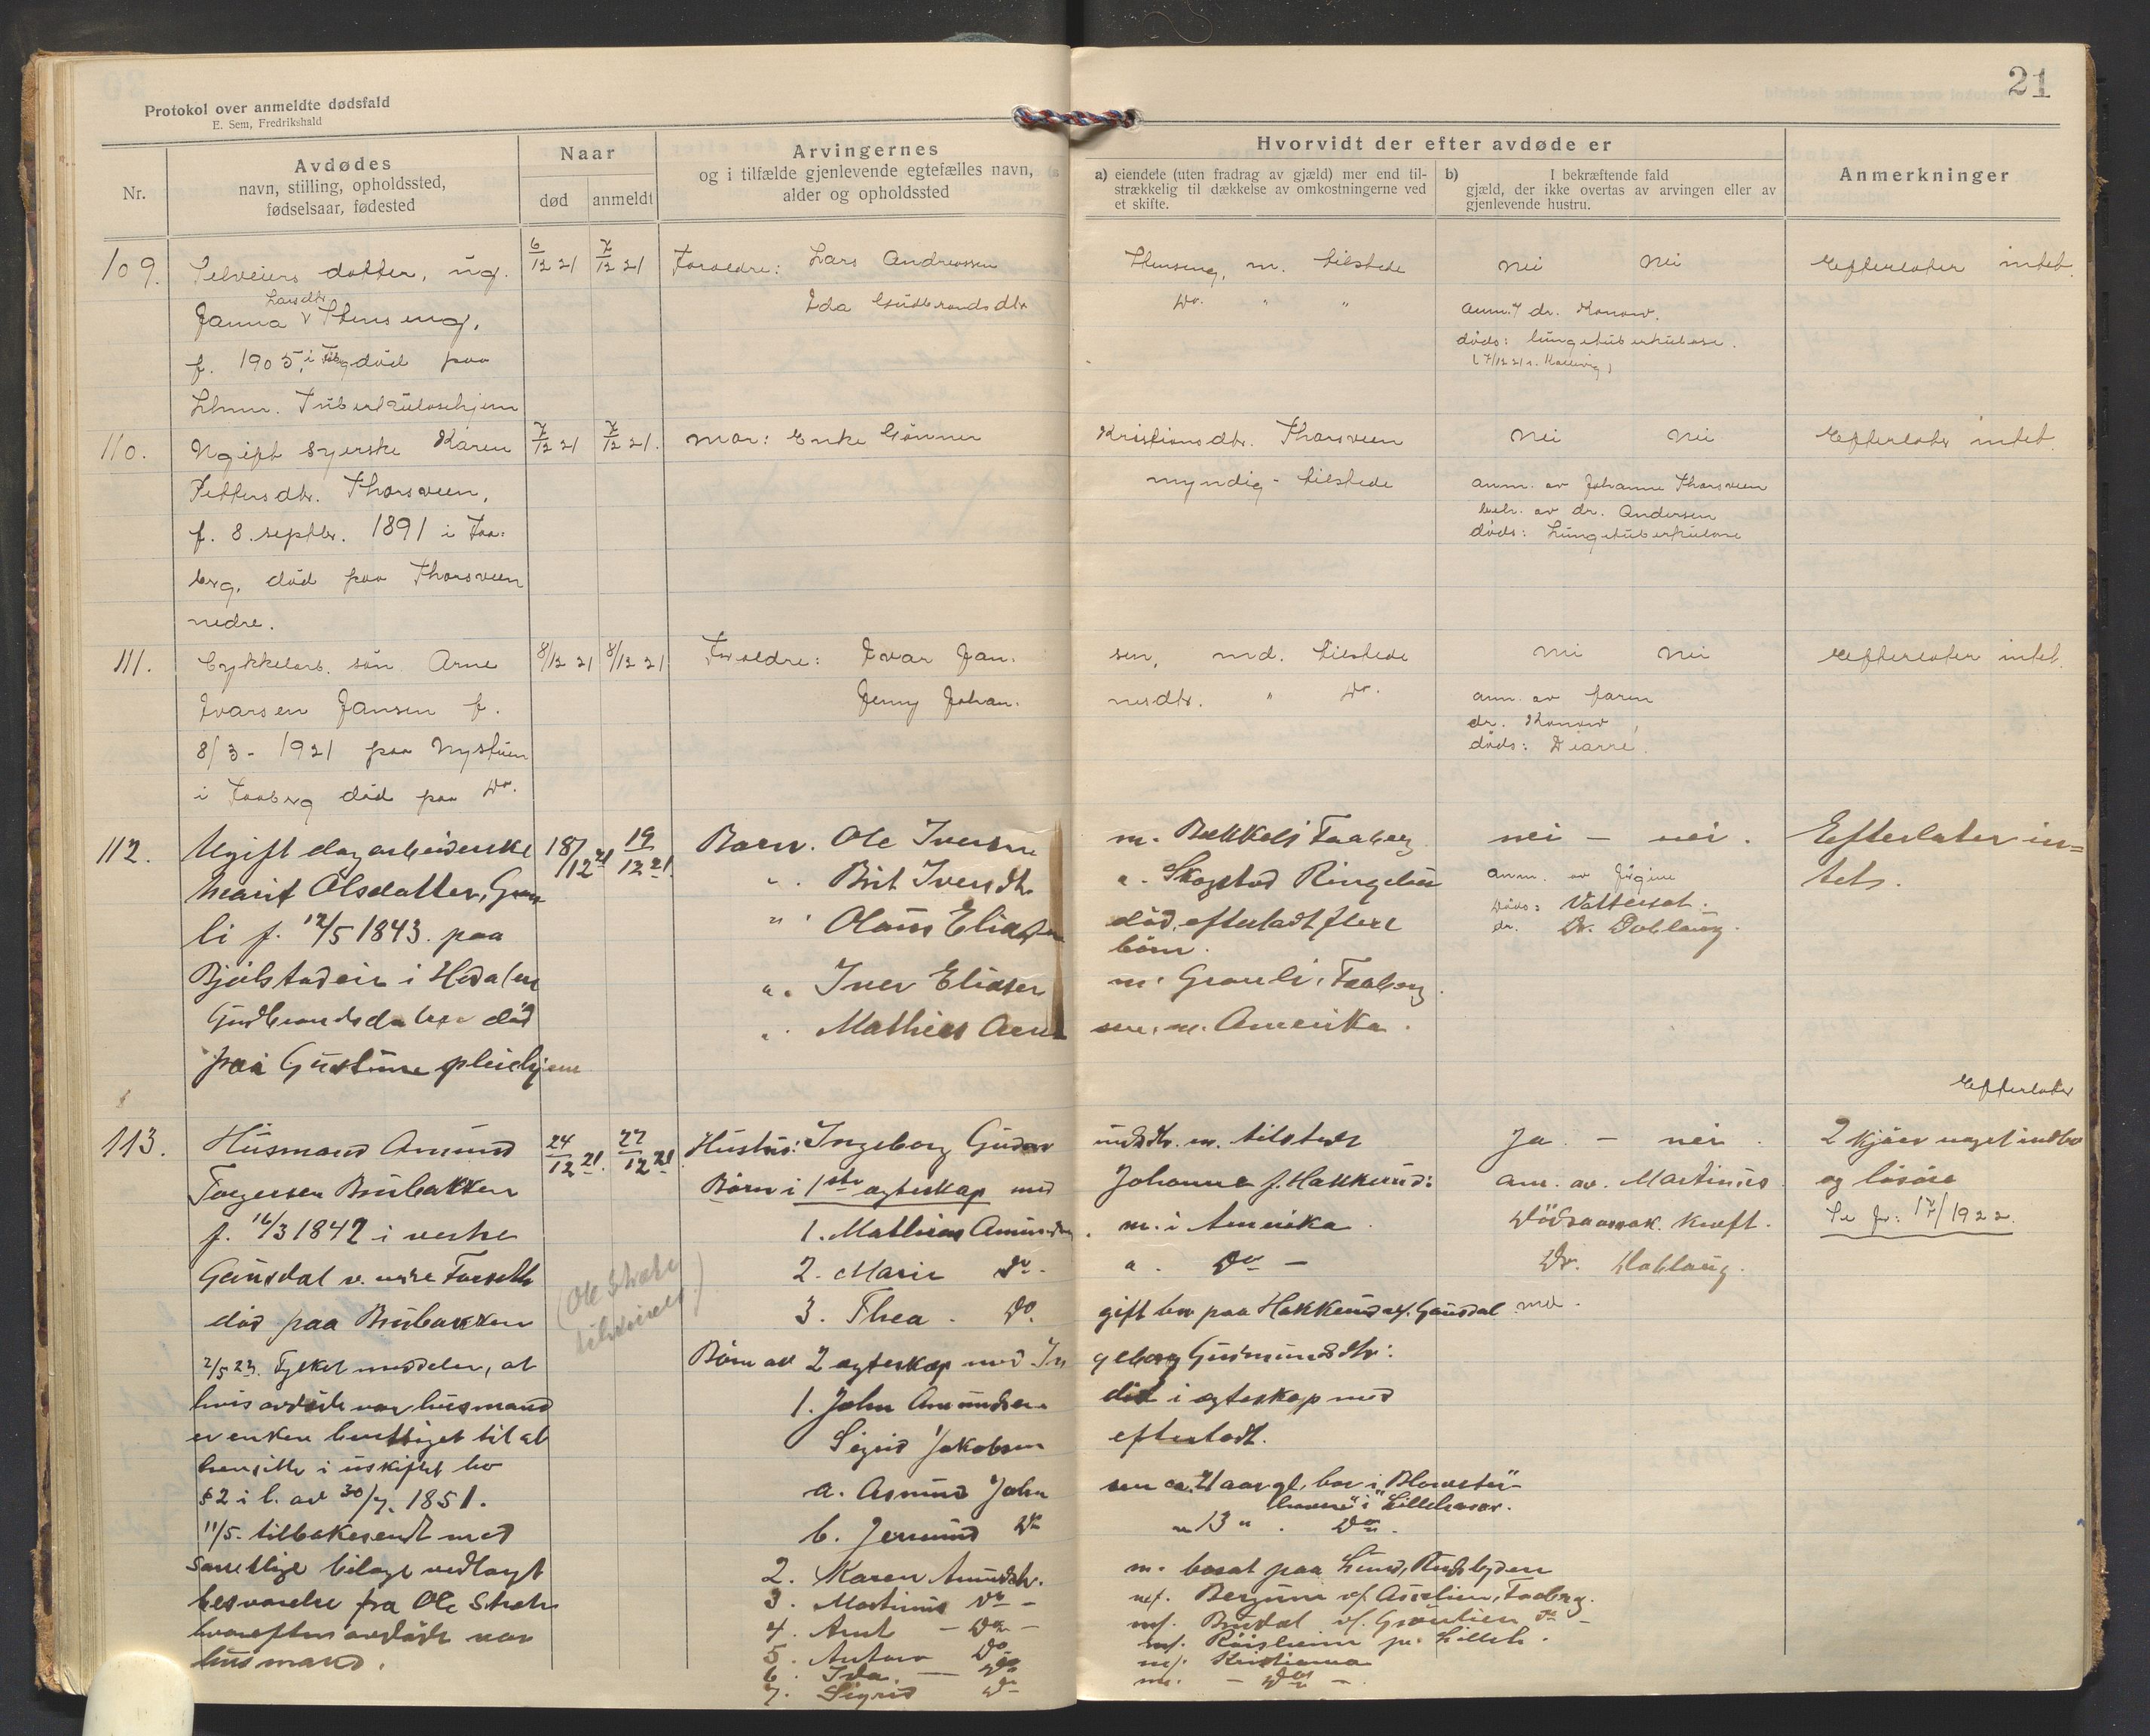 21
Protokol over anmeldte dødsfald
E. Sem, Fredrikshald
Nr.
Avdødes
navn, stilling, opholdssted,
fødselsaar, fødested
Naar
død
anmeldt
Arvingernes
og i tilfælde gjenlevende egtefælles navn,
alder og opholdssted
Hvorvidt der efter avdøde er
a) eiendele (uten fradrag av gjæld) mer end til-
strækkelig til dækkelse av omkostningerne ved
et skifte.
b) I bekræftende fald
gjæld, der ikke overtas av arvingen eller av
gjenlevende hustru.
Anmerkninger
109.
Selveiers datter, ug.
Larsdtr.
Janna v Stenseng,
f. 1905, i død paa
Lhmr. Tuberkulosehjem
6/12 21
7/12 21
Foroldre: Lars Andreassen
Ida Gudbrandsdtr
Stenseng, m. tilstede
Do. " "
nei nei
anm. dr. Konow.
døds: lungetuberkulose.
Efterlater intet.
110.
Ugift syerske Karen
Pettersdtr. Thorsveen,
f. 8. septbr. 1891 i Faa:
berg, død paa Thorsveen
nedre.
7/12 21
7/12 21.
mor: Enke Gunner
Kristiansdtr. Thorsveen
myndig - tilstede
Nei Nei
anm. av Johanne Thorsveen
beh. av dr. Andersen
døds: Lungetuberkulose
Efterlater intet.
111.
Cykkelarb. søn Arne
Ivarsen Jansen f.
8/3 - 1921 paa Nystuen
i Faaberg død paa Do.
8/12 21
8/12 21
Foroldre: Ivar Jan.
Jenny Johan.
sen, md. tilstede
nesdtr. " Do.
Nei Nei
anm. av faren
dr. Konow,
døds: Diarre.
Efterlater intet.
112.
Ugift dagarbeiderske
Marit Olsdatter, Gran
li f. 12/5 1843. paa
Bjølstadeie i Hedalen
Gudbrandsdalen død
paa Gustune pleiehjem
18/12 21
19/12 21.
Barn. Ole Iversen
". Brit Iversdtr
" . Olaus Eliassen
". Iver Eliasen
". Mathias Arnt
m. Bækkels Faaberg
". Skogstad Ringebu
død, efterladt flere
børn.
m. Granli, Faaberg.
sen. m. Amerika.
nei - nei.
anm. av Jørgine
Døds: Vattersot.
dr. Dr. Doblaug.
Efterlater in=
tet.
113.
Husmand Amund
Torgersen Brubakken
f. 16/3 1842 i vestre
Gausdal v. Forseth
død paa Brubakken
2/5 23. Fylket meddeler, at
hvis avdøde var husmand
er enken berettiget til at
hensitte i uskiftet bo
§ 2 i l. av 30/7. 1851.
11/5. tilbakesendt med
samtlige bilage vedlagt
besvarelse fra Ole Stræte
hvorefter avdøde var
husmand.
24/12 21.
27/12 21.
(Ole Stræte
)
Hustru: Ingeborg Gudm
Børn i 1ste ægteskap med
1. Mathias Amundsen
2. Marie Do.
3. Thea . Do.
Børn av 2 ægteskap med In
1. John Amundsen
Sigrid Jakobsen
a. Asmund John
b. Jermund Do
2. Karen Amundsdtr.
3. Martinus Do -
4. Arnt - Do -
5. Anton Do
6. Ida - Do
7. Sigrid Do
undsdtr. m. tilstede
Johanne f. Hakkerud:
. m. i Amerika.
" . Do -
gift bor paa Hakkerud v. Gausdal md.
geborg Gudmundsdtr:
død i ægteskap med
efterladt.
sen ca. 21 aar gl. bor i "Blomster
havne" i Lillehamr.
" 13 " . Do.
m. bosat paa Lund, Rudsbygden
m. Bergum v/ Aaslien, Faaberg.
m. Brudal v/ Grønlien Do -
m. Røisheim pr. Lilleh.
m. Kristiania
m. - Do -.
Ja - nei.
Anm. av. Martinus.
Dødsaarsak. Kræft.
Dr. Doblaug.
Efterlater
2 kjøer noget indbo
og løsøre
Se jr: 17/1922.